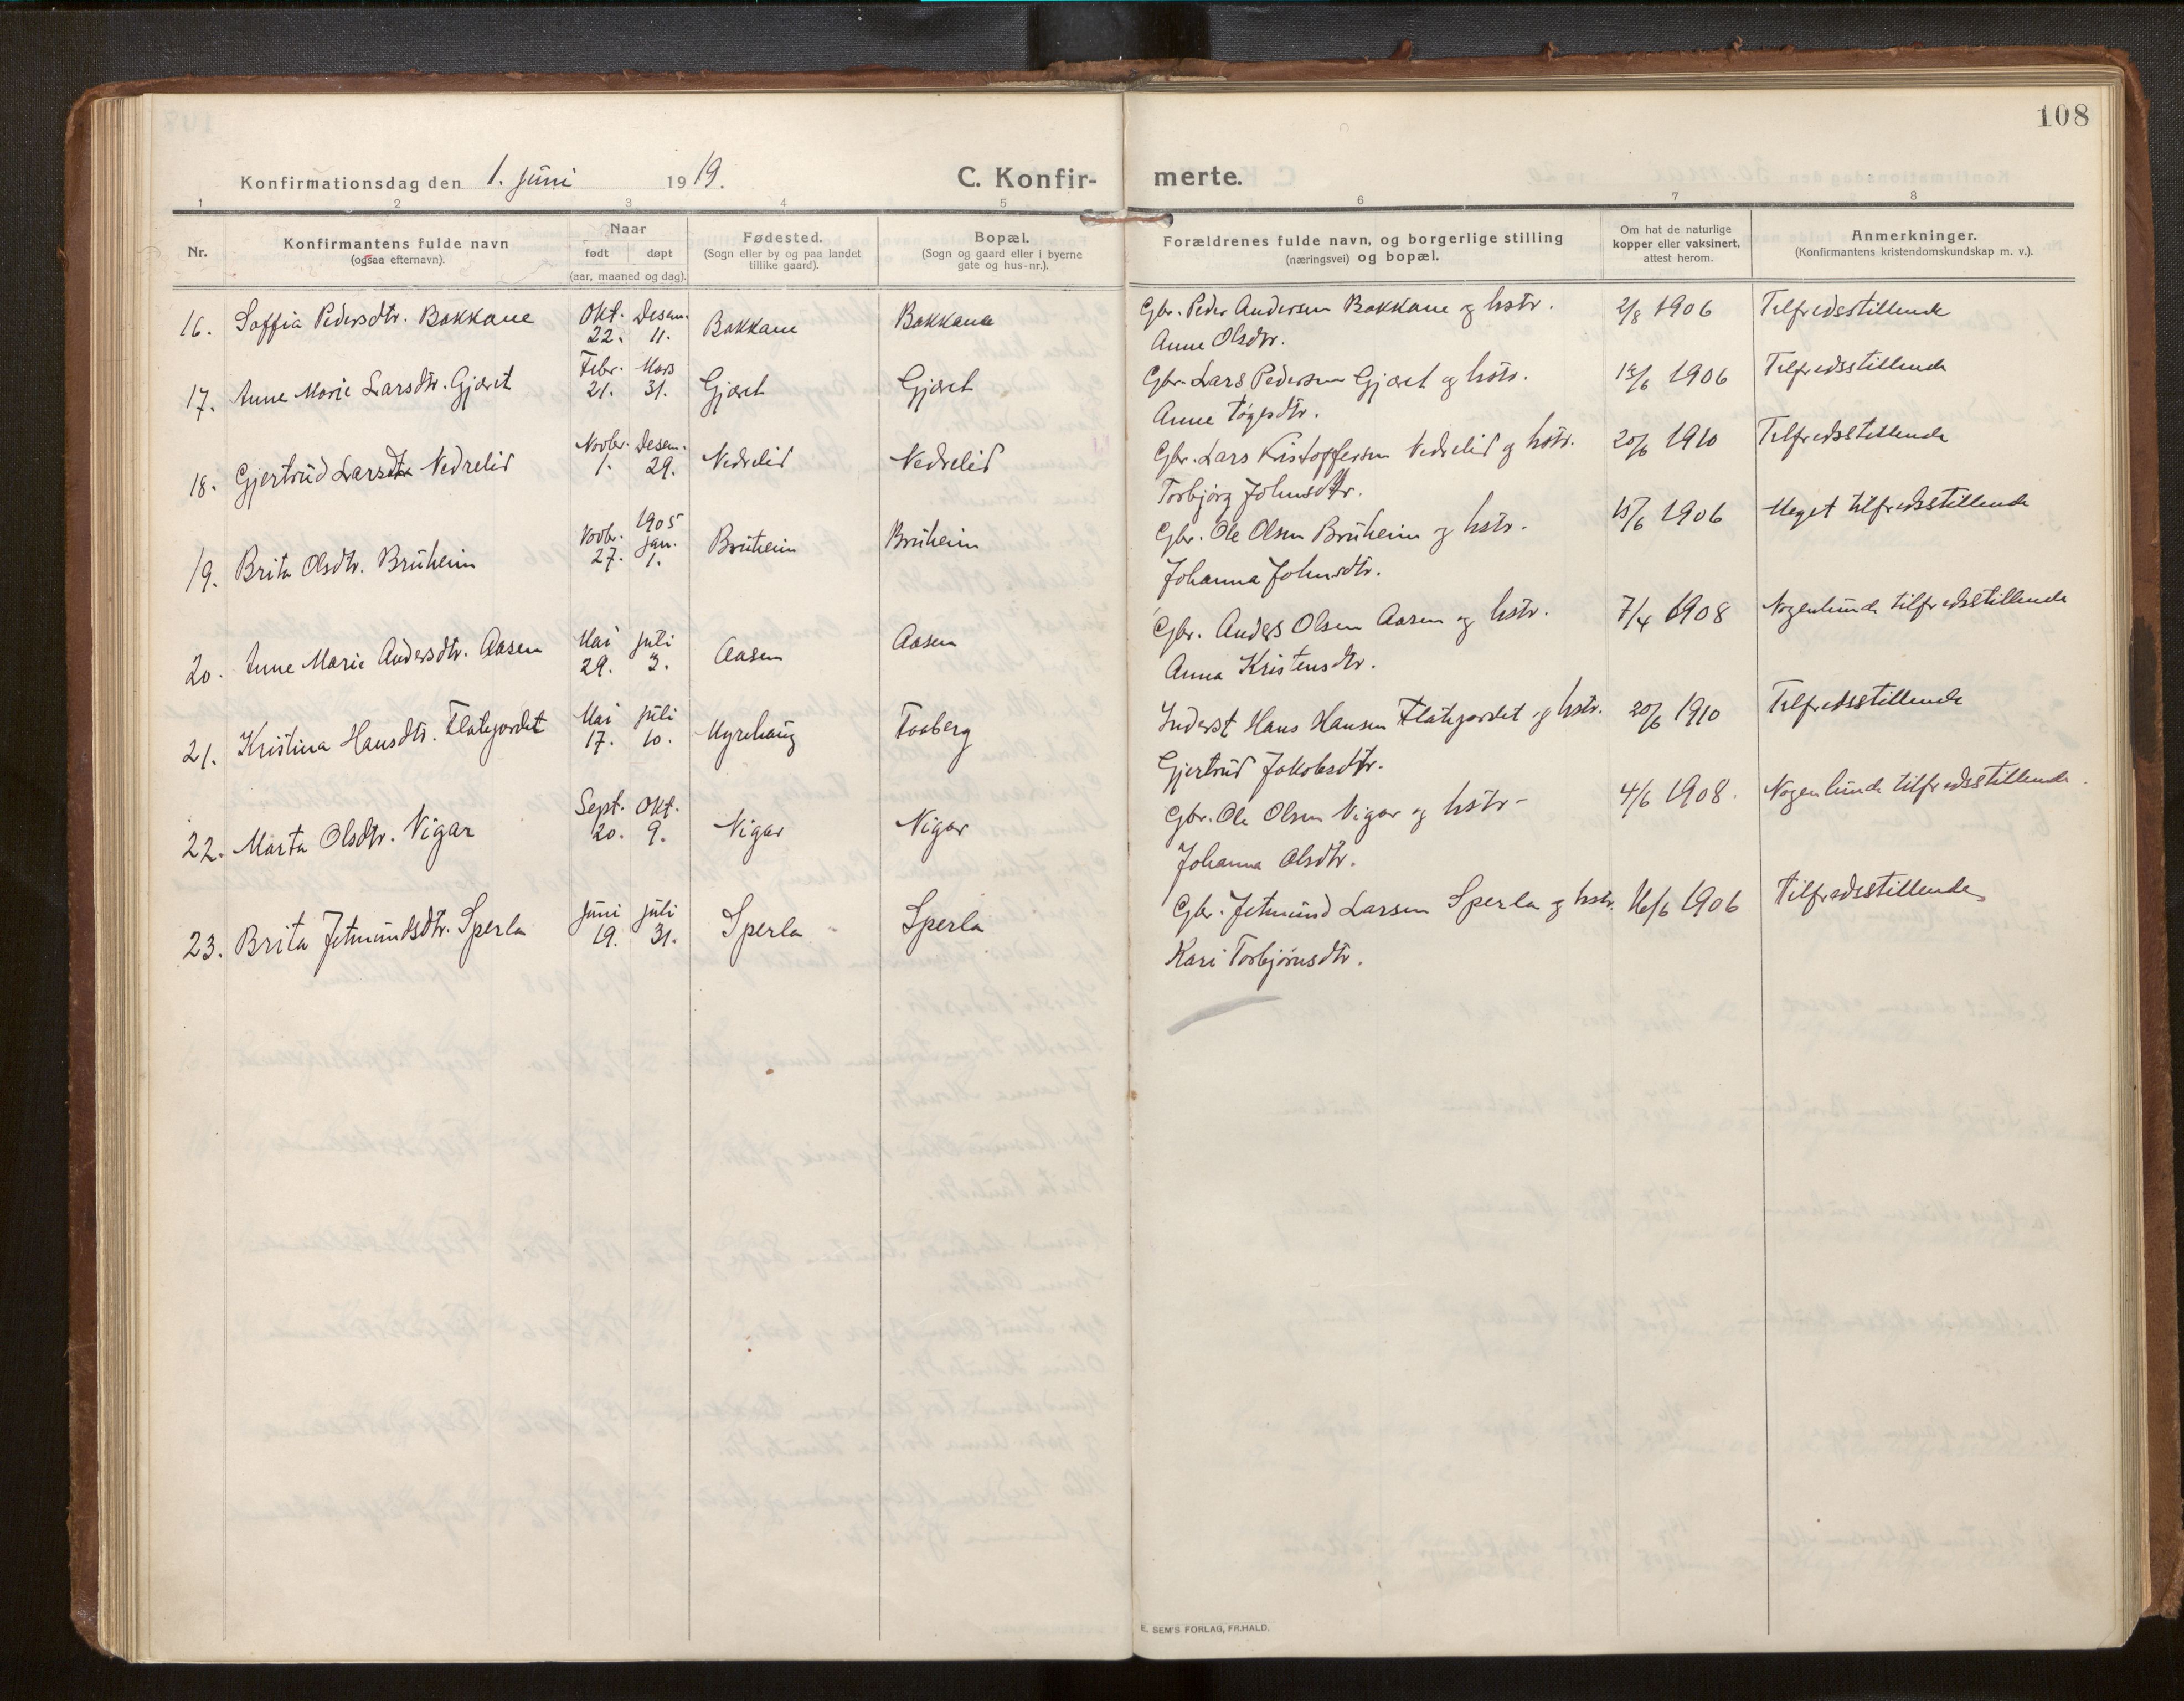 108
Konfirmationsdag den 1. Juni 1919. C. Konfir- merte.
1 2 3 4 5 6 7 8
Nr.
Konfirmantens fulde navn
(ogsaa efternavn).
Naar
født døpt
(aar, maaned og dag).
Fødested.
(Sogn eller by og paa landet
tillike gaard).
Bopæl.
(Sogn og gaard eller i byerne
gate og hus-nr.).
Forældrenes fulde navn, og borgerlige stilling
(næringsvei) og bopæl.
Om hat de naturlige
kopper eller vaksinert,
attest herom.
Anmerkninger.
(Konfirmantens kristendomskundskap m. v.).
16. Soffia Pedersdtr. Bakkane Okt. 22. Desem. 11. Bakkane Bakkane Gbr. Peder Andersen Bakkane og hstr. 2/8 1906 Tilfredsstillende
Anne Olsdtr.
17. Anne Marie Larsdtr. Gjæret Febr. 21. Mars 31. Gjæret Gjæret Gbr. Lars Pedersen Gjæret og hstr. /6 1906 Tilfredsstillende
Anne Tøgesdtr.
18. Gjertrud Larsdtr Nedrelid Novbr. 1. Desem. 29. Nedrelid Nedrelid Gbr. Lars Kristoffersen Nedrelid og hstr. 20/6 1910 Tilfredsstillende
Torbjørg Johnsdtr.
19. Brita Olsdtr. Bruheim Novbr. 27. 1905 Jan. 1. Bruheim Bruheim Gbr. Ole Olsen Bruheim og hstr. 15/6 1906 Meget tilfredsstillende
Johanna Johnsdtr.
20. Anne Marie Andersdtr. Aasen Mai 29. Juli 3. Aasen Aasen Gbr. Anders Olsen Aasen og hstr. 7/4 1908 Nogenlunde tilfredsstillende
Anna Kristensdtr.
21. Kristina Hansdtr. Flategjordet Mai 17. Juli 10. Myrehaug Faaberg Inderst Hans Hansen Flategjordet og hstr. 20/6 1910 Tilfredsstillende
Gjertrud Jakobsdtr.
22. Marta Olsdtr. Nigar Sept. 20. Okt. 9. Nigar Nigar Gbr. Ole Olsen Nigar og hstr- 4/6 1908. Nogenlunde tilfredsstillende.
Johanna Olsdtr.
23. Brita Jetmundsdtr. Sperla Juni 19. Juli 31. Sperla Sperla Gbr. Jetmund Larsen Sperla og hstr. 16/6 1906 Tilfredsstillende
Kari Torbjørnsdtr.
E. SEM'S FORLAG, FR.HALD.